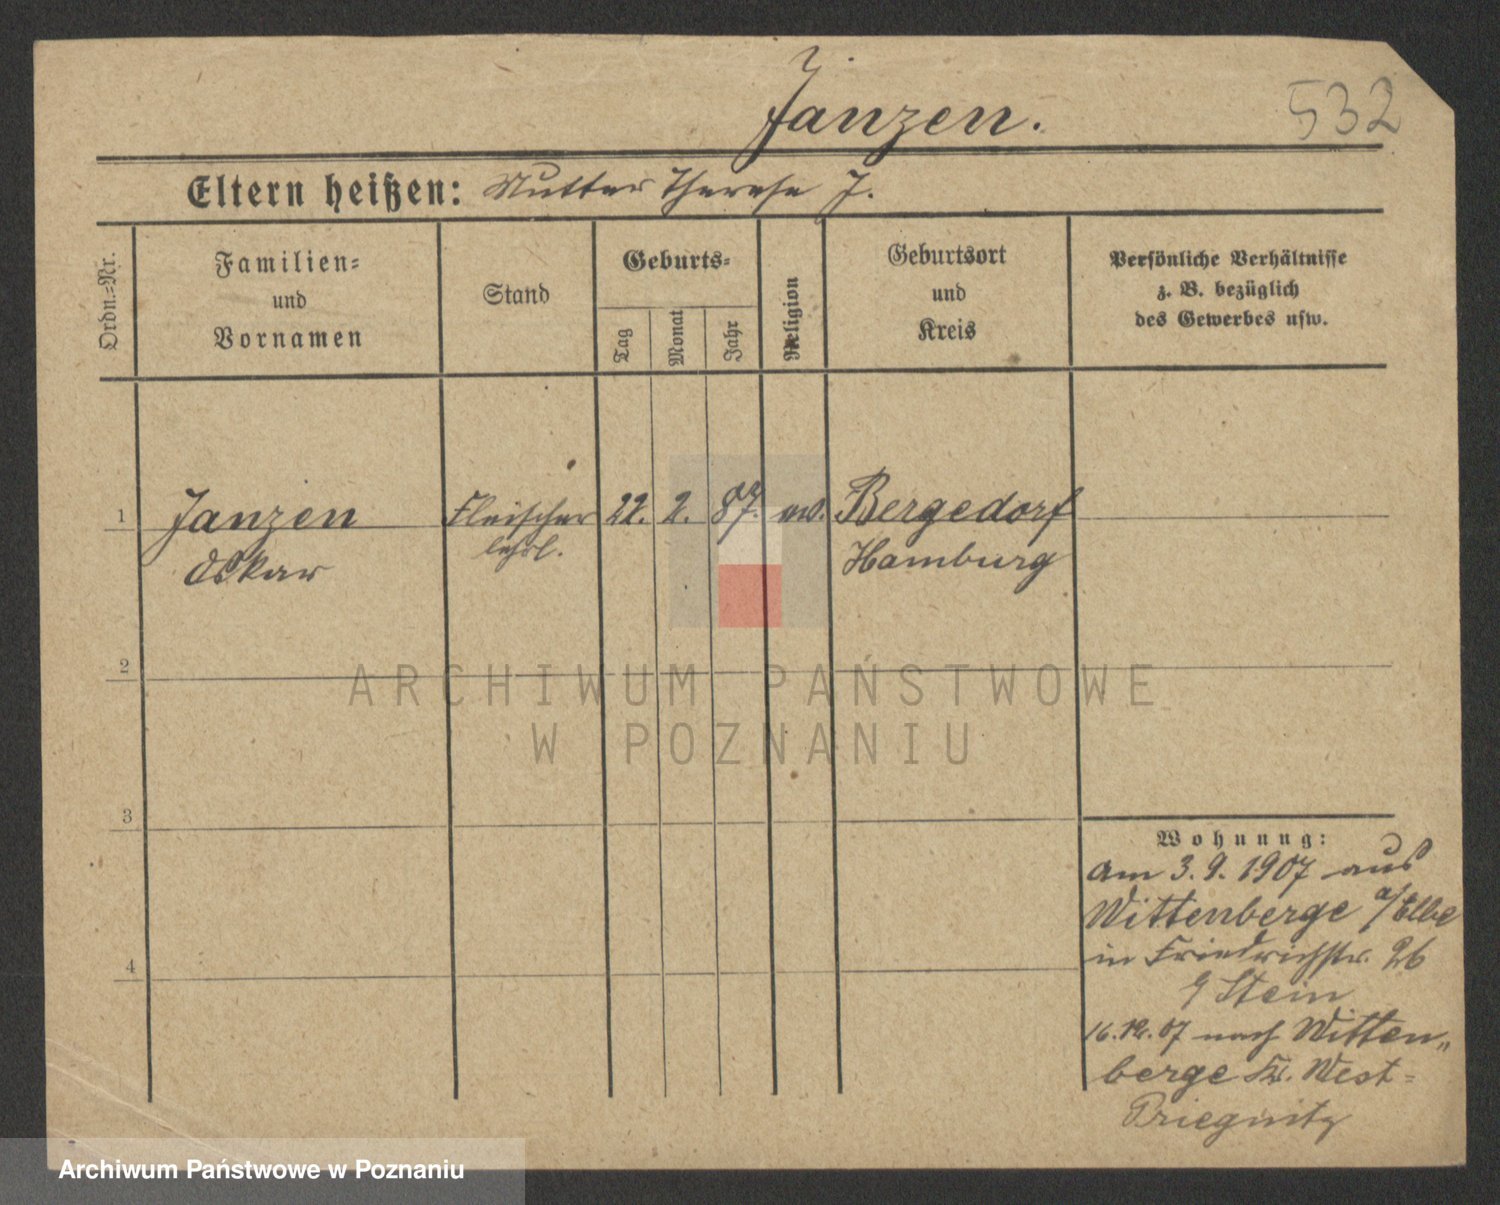 Janzen.
532
Eltern heißen: Mutter Therese J.
Ordn.=Nr.
Familien=
und
Vornamen
Stand
Geburts=
Tag
Monat
Jahr
Religion
Geburtsort
und
Kreis
Persönliche Verhältnisse
z. B. bezüglich
des Gewerbes usw.
1 Janzen Fleischer 22. 2. 87. ev. Bergedorf
Oskar lehrl. Hamburg
2
3
4
Wohnung:
am 3.9.1907 aus
Wittenberge a/Elbe
in Friedrichstr. 26
Stein
16.12.07 nach Witten„
berge Kr. West=
Priegnitz
ARCHIWUM PAŃSTWOWE
W POZNANIU
Archiwum Państwowe w Poznaniu